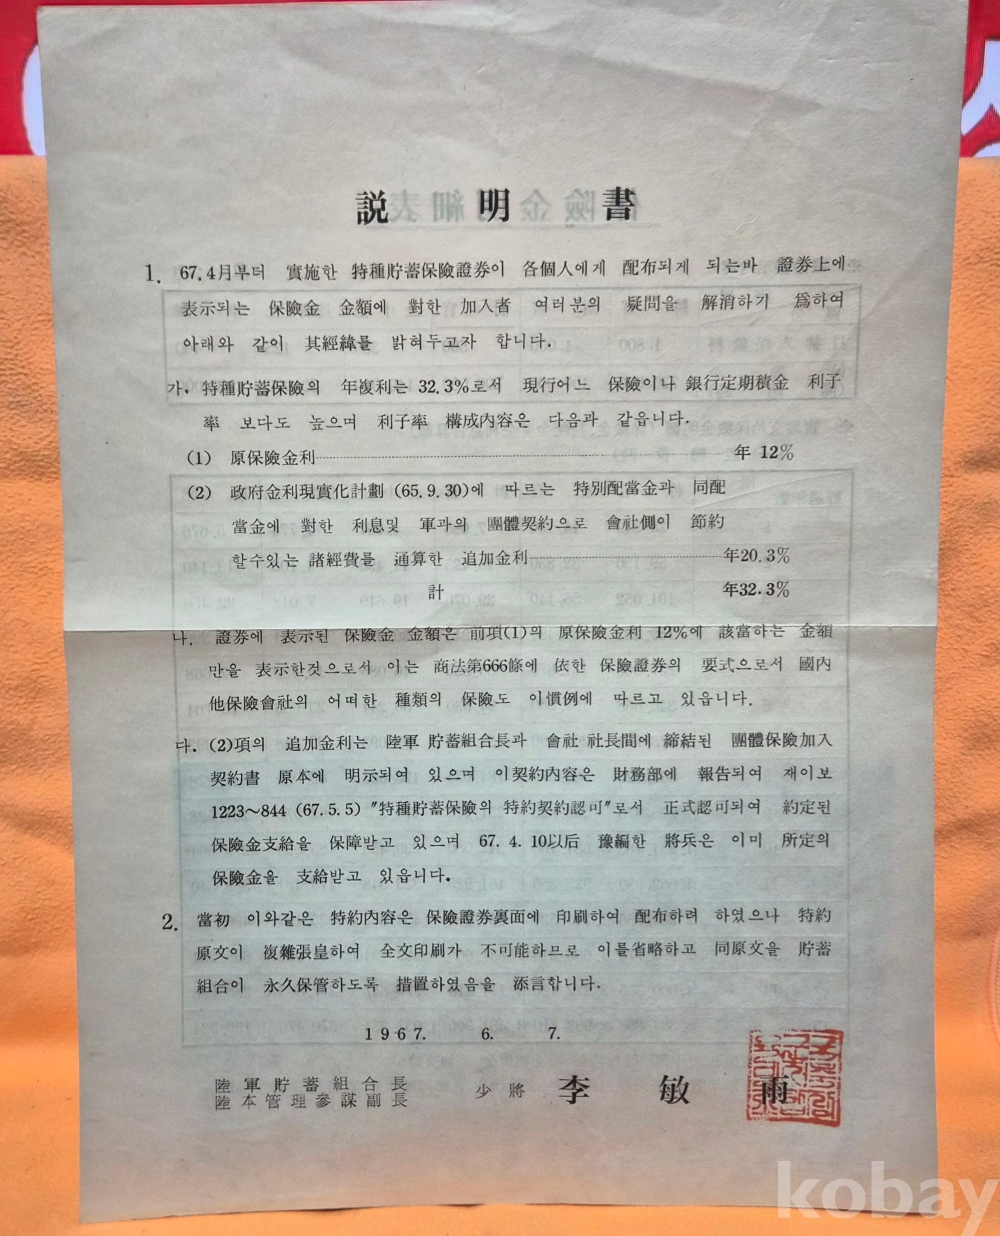 説明書
1. 67.4月부터 實施한 特種貯蓄保險證券이 各個人에게 配布되게 되는바 證券上에
表示되는 保險金 金額에 對한 加入者 여러분의 疑問을 解消하기 爲하여
아래와 같이 其經緯를 밝혀두고자 합니다.
가. 特種貯蓄保險의 年複利는 32.3%로서 現行어느 保險이나 銀行定期積金 利子
率 보다도 높으며 利子率 構成內容은 다음과 같읍니다.
(1) 原保險金利 年 12%
(2) 政府金利現實化計劃 (65.9.30)에 따르는 特別配當金과 同配
當金에 對한 利息및 軍과의 團體契約으로 會社側이 節約
할수있는 諸經費를 通算한 追加金利 年20.3%
計 年32.3%
나. 證券에 表示된 保險金 金額은 前項(1)의 原保險金利 12%에 該當하는 金額
만을 表示한것으로서 이는 商法第666條에 依한 保險證券의 要式으로서 國內
他保險會社의 어떠한 種類의 保險도 이慣例에 따르고 있읍니다.
다. (2)項의 追加金利는 陸軍 貯蓄組合長과 會社 社長間에 締結된 團體保險加入
契約書 原本에 明示되여 있으며 이契約內容은 財務部에 報告되여 재이보
1223~844 (67.5.5) "特種貯蓄保險의 特約契約認可"로서 正式認可되여 約定된
保險金支給을 保障받고 있으며 67. 4. 10以后 豫編한 將兵은 이미 所定의
保險金을 支給받고 있읍니다.
2. 當初 이와같은 特約內容은 保險證券裏面에 印刷하여 配布하려 하였으나 特約
原文이 複雜張皇하여 全文印刷가 不可能하므로 이를省略하고 同原文을 貯蓄
組合이 永久保管하도록 措置하였음을 添言합니다.
1967. 6. 7.
陸軍貯蓄組合長
陸本管理參謀副長 少將 李敏雨
kobay